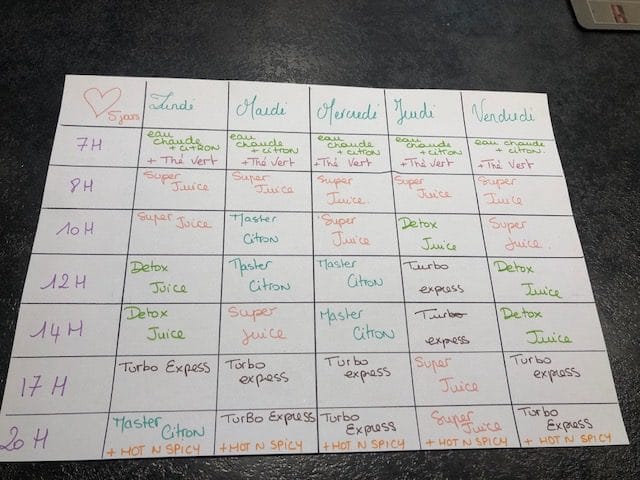 5 jours Lundi Mardi Mercredi Jeudi Vendredi
7H eau chaude + CITRON + Thé Vert eau chaude + CITRON +Thé Vert eau chaude + CITRON +Thé Vert eau chaude + CITRON +Thé Vert eau chaude + CITRON. +Thé Vert
8H Super Juice Super Juice Super Juice. Super Juice Super Juice
10 H Super Juice Master Citron Super Juice Detox Juice Super Juice.
12 H Detox Juice Master Citron Master Citron Turbo express Detox Juice
14 H Detox Juice Super Juice Master Citron Turbo express Detox Juice
17 H Turbo Express Turbo express Turbo express Super Juice Turbo express
20 H Master Citron + HOT N SPICY TurBo Express + HOT N SPICY Turbo Express + HOT N SPICY Super Juice + HOT N SPICY Turbo Express + HOT N SPICY